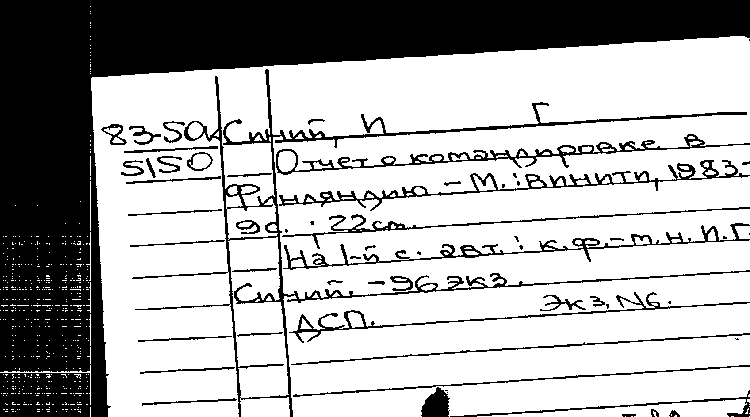 83-5Ок Синий, И Г
5150 Отчет о командировке в
Финляндию. - М.: ВИНИТИ, 1983.-
9с. ; 22см.
На 1-й с. авт.: к.ф.-м.н. И.Г.
Синий. - 96 экз.
ДСП. Экз. №6.